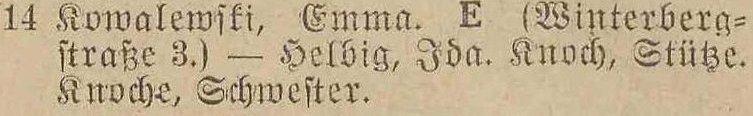 14 Kowalewſki, Emma. E (Winterberg=
ſtraße 3.) — Helbig, Ida. Knoch, Stütze.
Knoche, Schweſter.